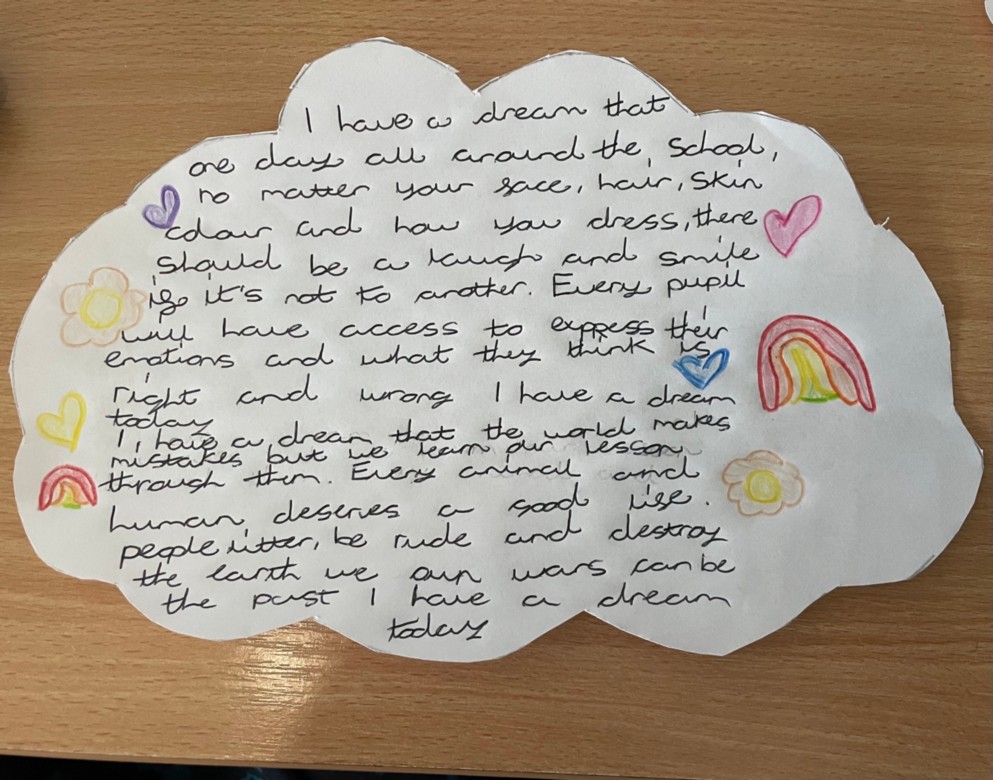 I have a dream that
one day all around the school,
no matter your face, hair, skin
colour and how you dress, there
should be a laugh and smile
if it's not to another. Every pupil
will have access to express their
emotions and what they think is
right and wrong I have a dream
today
I have a dream that the world makes
mistakes but we learn our lesson
through them. Every animal and
human deserves a good life.
people litter, be rude and destroy
the earth we own wars can be
the past I have a dream
today